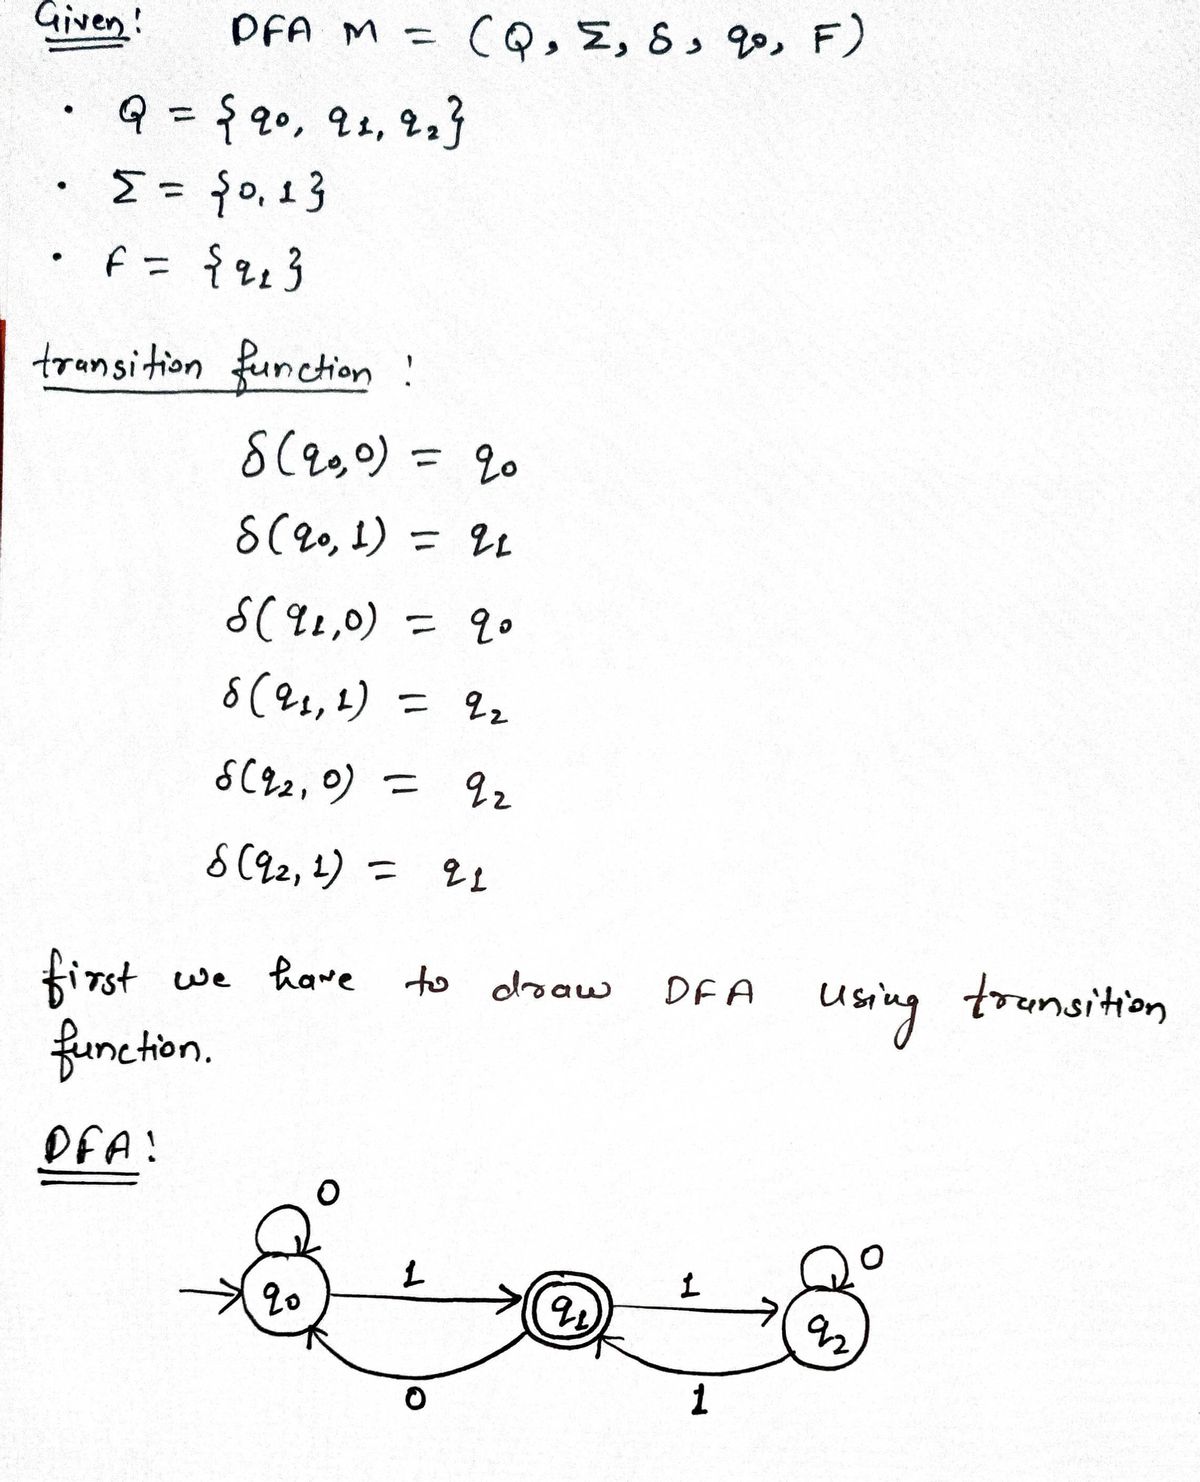 Given: DFA M = (Q, Σ, δ, q0, F)
• Q = {q0, q1, q2}
• Σ = {0, 1}
• F = {q1}
transition function :
δ(q0, 0) = q0
δ(q0, 1) = q1
δ(q1, 0) = q0
δ(q1, 1) = q2
δ(q2, 0) = q2
δ(q2, 1) = q1
first we have to draw DFA using transition
function.
DFA:
0
0
1
1
q0
q1
q2
0
1